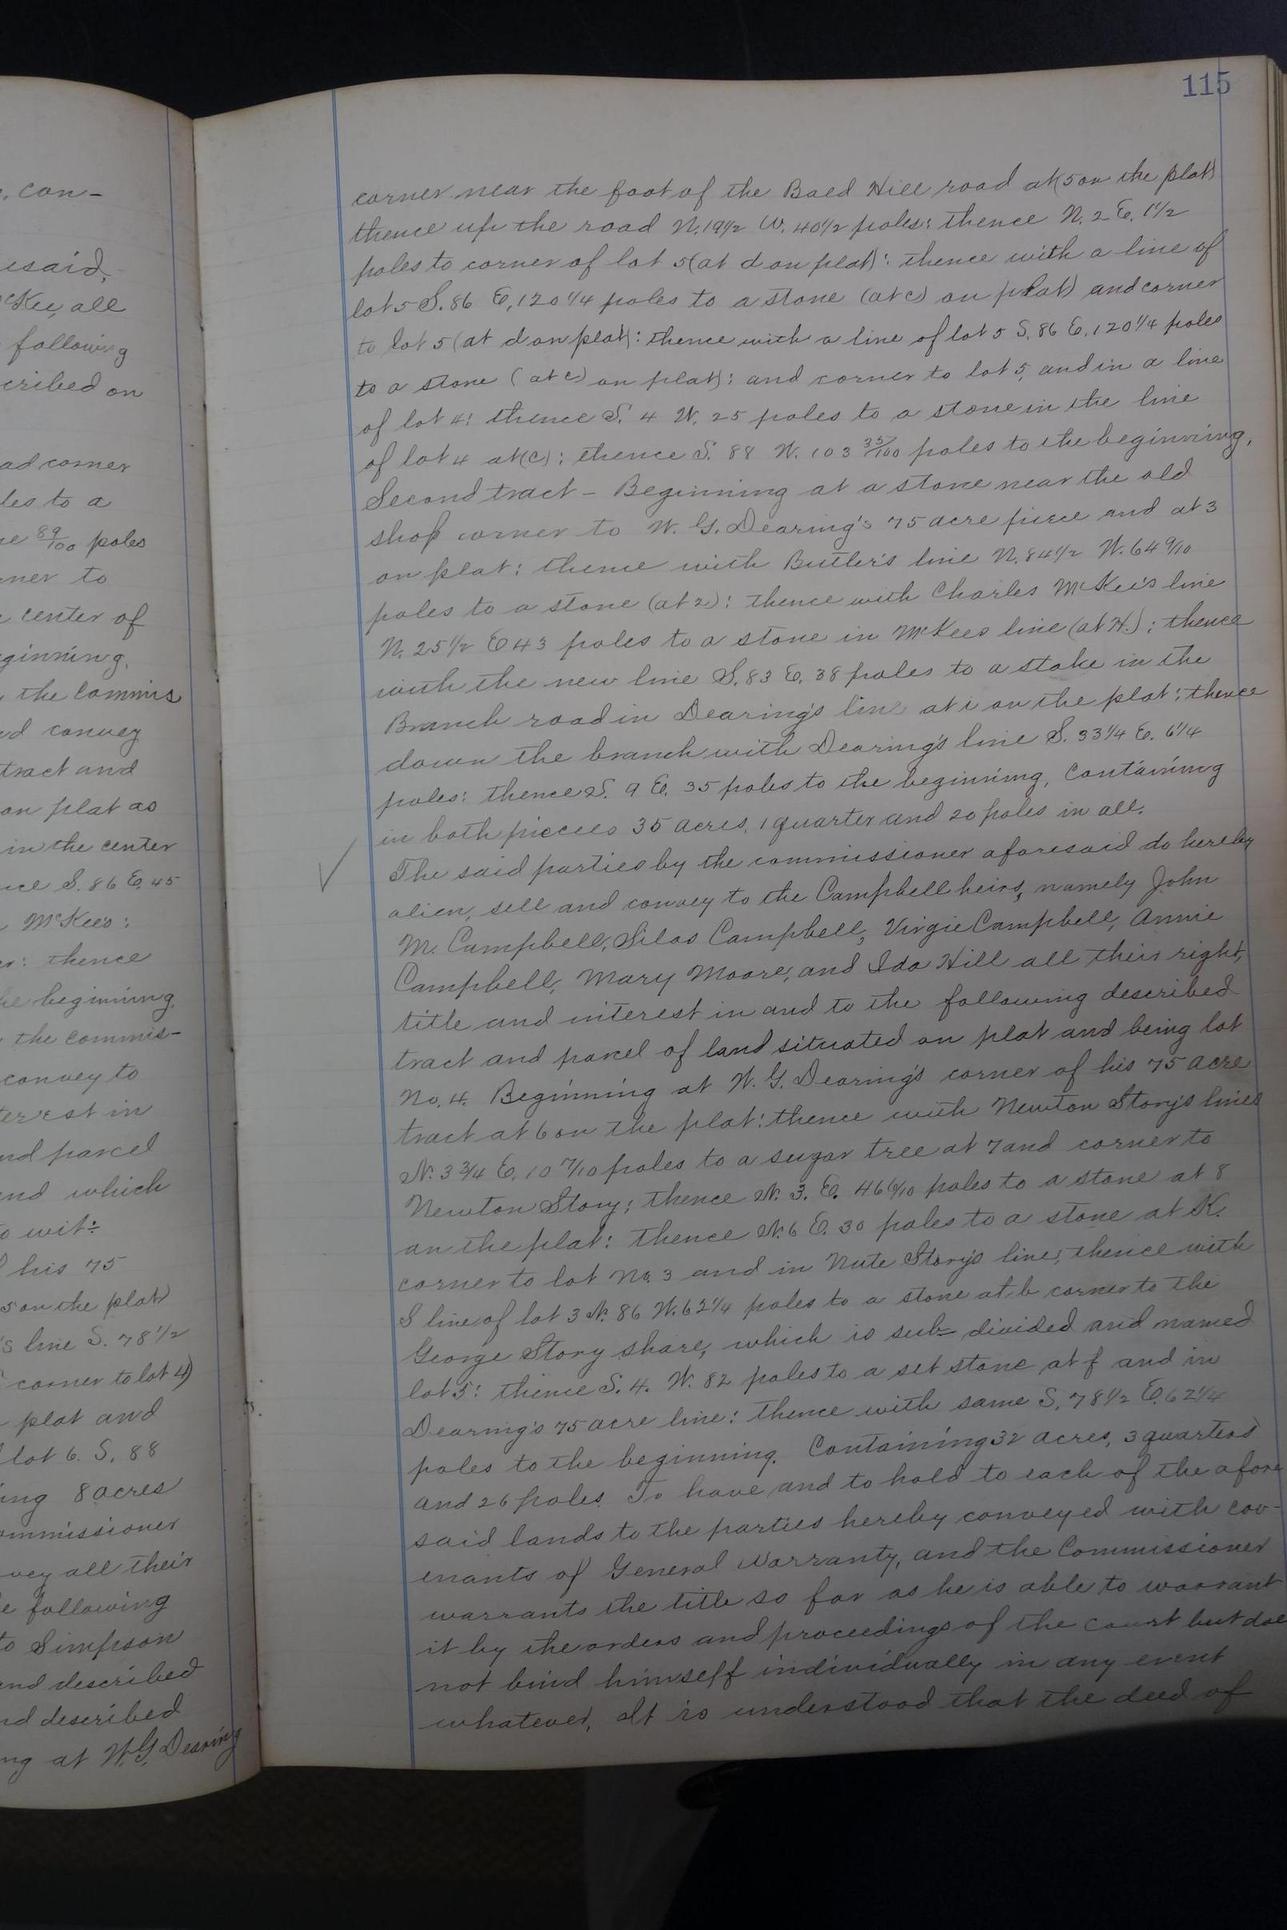 115
, con-
esaid,
McKee, all
following
cribed on
ad corner
les to a
ne 89/100 poles
rner to
e center of
ginning.
the commis
ed convey
tract and
on plat as
in the center
nce S. 86 E 45
McKee's:
er: thence
he beginning.
the commis-
convey to
terest in
nd parcel
and which
to wit:
his 75
5 on the plat)
's line S. 78 1/2
corner to lot 4)
plat and
lot 6. S. 88
ing 8 acres
ommissioner
vey all their
e following
to Simpson
and described
nd described
ng at W.G. Dearing
corner near the foot of the Bald Hill road at (5 on the plat)
thence up the road N. 19 1/2 W. 40 1/2 poles: thence N. 2 E. 1 1/2
poles to corner of lot 5 (at d on plat): thence with a line of
lot 5 S. 86 E, 120 1/4 poles to a stone (at c) on plat) and corner
to lot 5 (at d on plat): thence with a line of lot 5 S. 86 E. 120 1/4 poles
to a stone (at c) on plat): and corner to lot 5, and in a line
of lot 4: thence S. 4 W. 25 poles to a stone in the line
of lot 4 at (C); thence S. 88 W. 103 35/100 poles to the beginning.
Second tract - Beginning at a stone near the old
shop corner to W. G. Dearing's 75 acre piece and at 3
on plat: thence with Butler's line N. 84 1/2 W. 64 9/10
poles to a stone (at 2): thence with Charles McKee's line
N. 25 1/2 E 43 poles to a stone in McKees line (at H.); thence
with the new line S. 83 E. 38 poles to a stake in the
Branch road in Dearing's line at i on the plat: thence
down the branch with Dearing's line S. 33 1/4 E. 6 1/4
poles: thence S. 9 E. 35 poles to the beginning, Containing
in both pieces 35 acres, 1 quarter and 20 poles in all.
The said parties by the commissioner aforesaid do hereby
alien, sell and convey to the Campbell heirs, namely John
M. Campbell, Silas Campbell, Virgie Campbell, Annie
Campbell, Mary Moore, and Ida Hill all their right,
title and interest in and to the following described
tract and parcel of land situated on plat and being lot
No. 4. Beginning at W. G. Dearing's corner of his 75 acre
tract at 6 on the plat: thence with Newton Story's lines
N. 3 3/4 E. 10 7/10 poles to a sugar tree at 7 and corner to
Newton Story; thence N. 3. E. 46 6/10 poles to a stone at 8
on the plat: thence N. 6 E. 30 poles to a stone at K.
corner to lot No. 3 and in Nute Story's line; thence with
S line of lot 3 N. 86 W. 62 1/4 poles to a stone at b corner to the
George Story share, which is sub-divided and named
lot 5: thence S. 4. W. 82 poles to a set stone at f and in
Dearing's 75 acre line: thence with same S. 78 1/2 E. 62 1/4
poles to the beginning. Containing 32 acres, 3 quarters
and 26 poles. To have and to hold to each of the afore
said lands to the parties hereby conveyed with cov-
enants of General Warranty, and the Commissioner
warrants the title so far as he is able to warrant
it by the orders and proceedings of the court but doe
not bind himself individually in any event
whatever, It is understood that the deed of